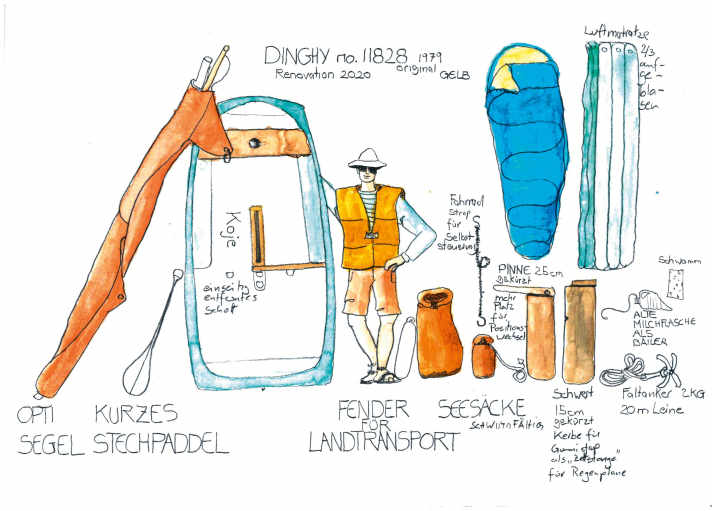 DINGHY no. 11828 1979
original GELB
Renovation 2020
Luftmatratze
2/3
auf-
ge-
bla-
sen
Fahrrad
Strap
für
Selbst
steuerung
Koje
einseitig
entferntes
Schott
PINNE 25cm
gekürzt
mehr
Platz
für
Positions-
wechsel
Schwamm
ALTE
MILCHFLASCHE
ALS
BAILER
OPTI
SEGEL
KURZES
STECHPADDEL
FENDER
FÜR
LANDTRANSPORT
SEESÄCKE
SCHWIMMFÄHIG
Schwert
15cm
gekürzt
Kerbe für
als „Zeltstange"
für Regenplane
Faltanker 2KG
20m Leine